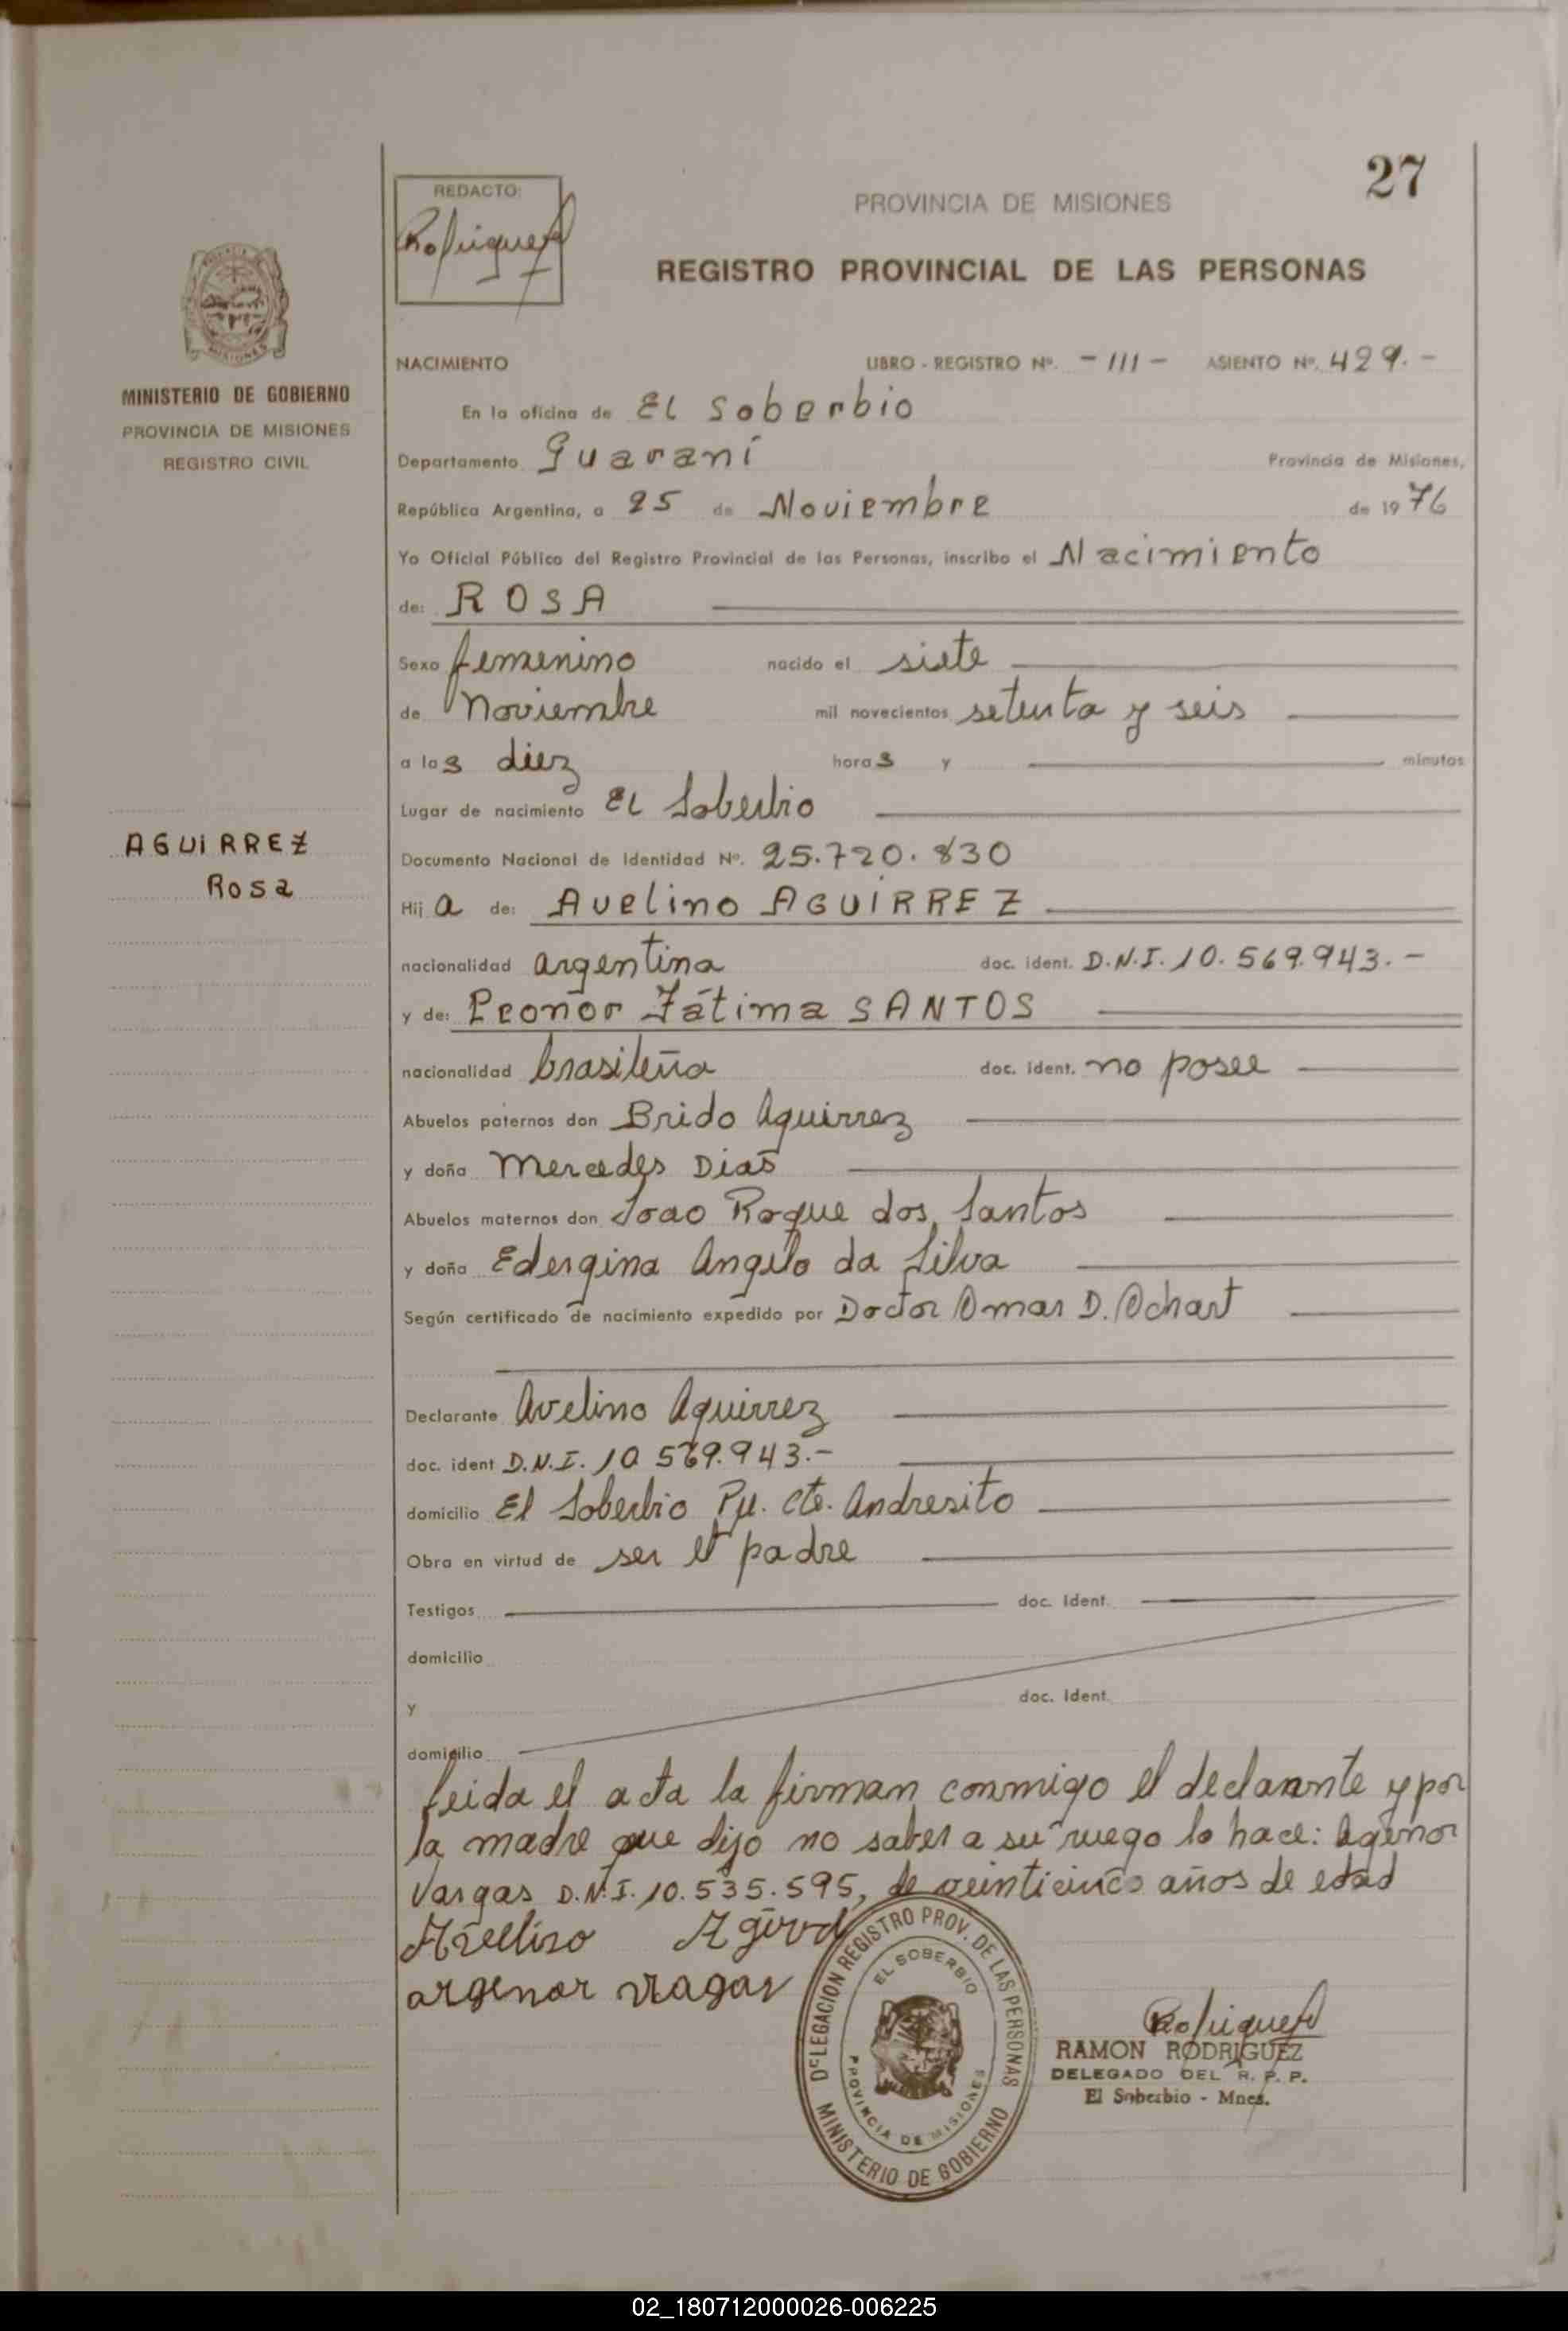 27
REDACTO:
Rodriguez
PROVINCIA DE MISIONES
REGISTRO PROVINCIAL DE LAS PERSONAS
MISIONES
MINISTERIO DE GOBIERNO
PROVINCIA DE MISIONES
REGISTRO CIVIL
NACIMIENTO LIBRO - REGISTRO Nº. - III - ASIENTO Nº. 429.-
En la oficina de El Soberbio
Departamento Guaraní Provincia de Misiones,
República Argentina, a 25 de Noviembre de 1976
Yo Oficial Público del Registro Provincial de las Personas, inscribo el Nacimiento
de: ROSA
Sexo femenino nacido el siete
de Noviembre mil novecientos setenta y seis
a las diez horas y minutos
Lugar de nacimiento El Soberbio
AGUIRREZ
Rosa
Documento Nacional de Identidad Nº. 25.720.830
Hija de: Avelino AGUIRREZ
nacionalidad argentina doc. ident. D.N.I. 10.569.943.-
y de: Leonor Fátima SANTOS
nacionalidad brasileña doc. ident. no posee
Abuelos paternos don Brido Aguirrez
y doña Mercedes Dias
Abuelos maternos don Joao Roque dos Santos
y doña Edergina Angelo da Silva
Según certificado de nacimiento expedido por Doctor Omar D. Ochart
Declarante Avelino Aguirrez
doc. ident D.N.I. 10.569.943.-
domicilio El Soberbio Pje. Cte. Andresito
Obra en virtud de ser el padre
Testigos doc. Ident.
domicilio
y doc. Ident.
domicilio
Leida el acta la firman conmigo el declarante y por
la madre que dijo no saber a su ruego lo hace: Agenor
Vargas D.N.I. 10.535.595, de veinticinco años de edad
Avelino
argenor vragas
DELEGACION REGISTRO PROV. DE LAS PERSONAS
EL SOBERBIO
PROVINCIA DE MISIONES
MINISTERIO DE GOBIERNO
Rodriguez
RAMON RODRIGUEZ
DELEGADO DEL R. P. P.
El Soberbio - Mnes.
02_180712000026-006225